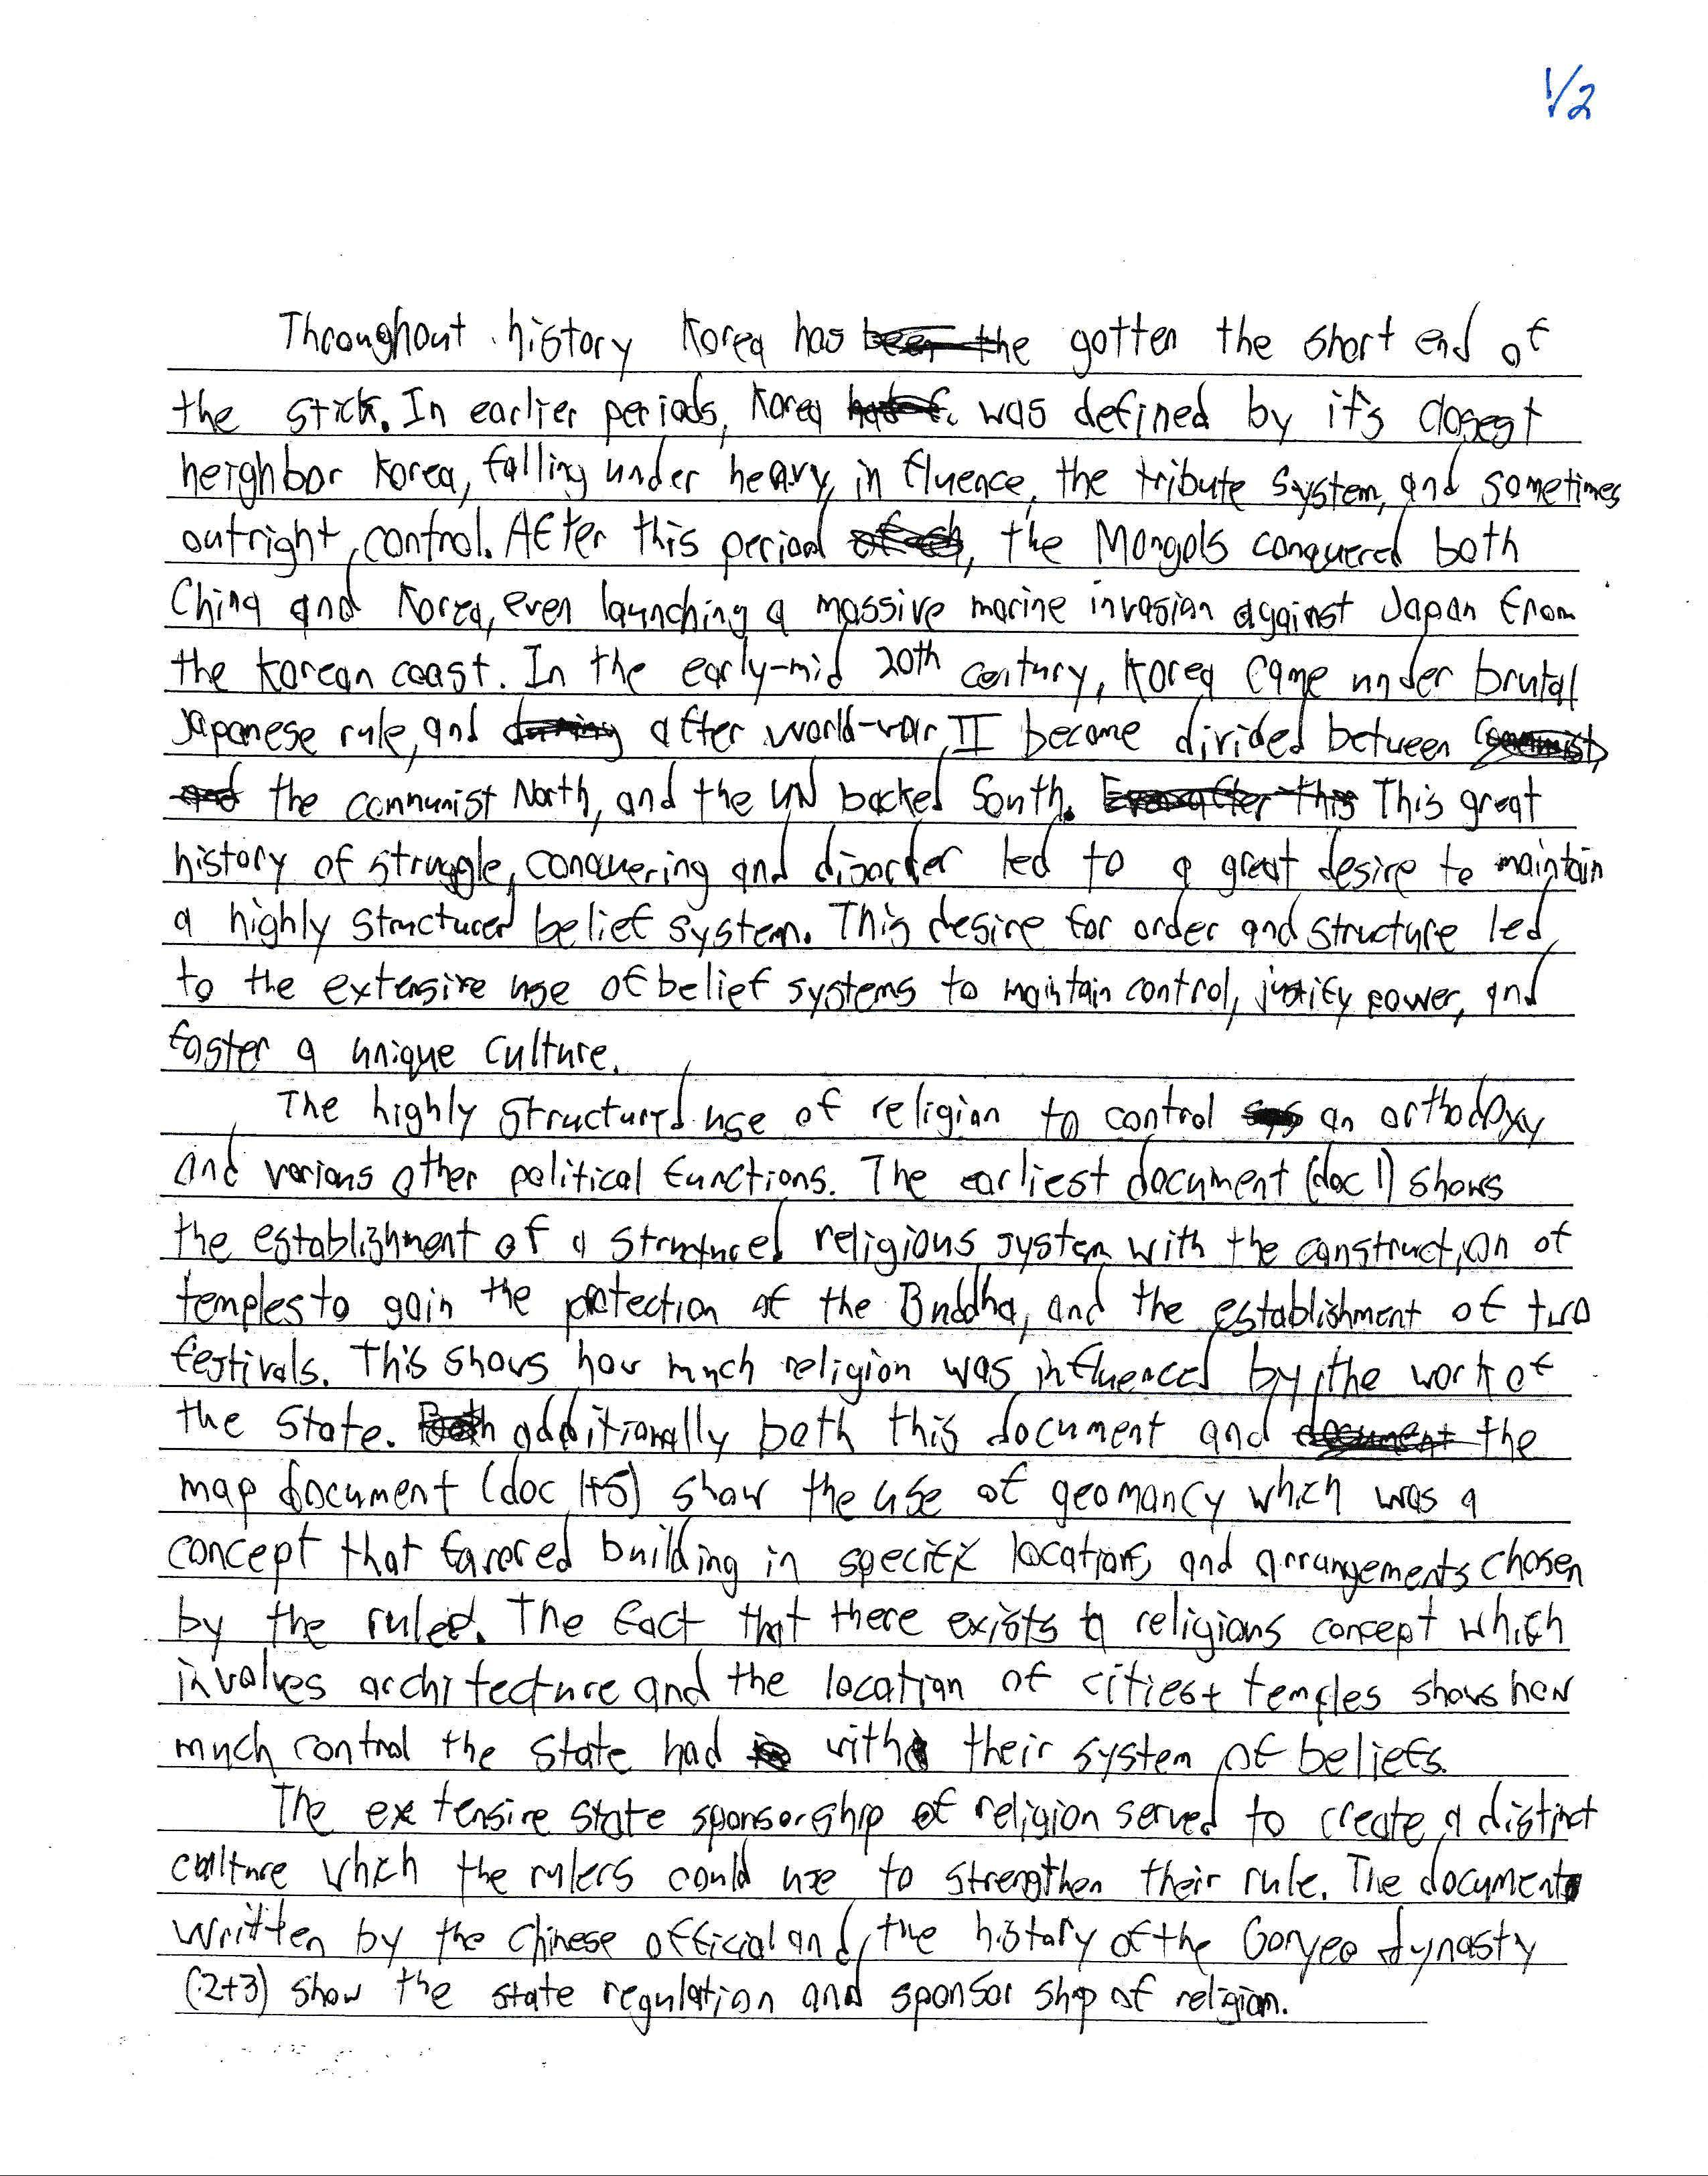 1/2
Throughout history Korea has been the gotten the short end of
the stick. In earlier periods, Korea was defined by it's closest
neighbor Korea, falling under heavy influence, the tribute system, and sometimes
outright control. After this period, the Mongols conquered both
China and Korea, even launching a massive marine invasion against Japan from
the Korean coast. In the early-mid 20th century, Korea came under brutal
Japanese rule, and during after world-war II became divided between
and the communist North, and the UN backed South. Even after this This great
history of struggle, conquering and disorder led to a great desire to maintain
a highly structured belief system. This desire for order and structure led
to the extensive use of belief systems to maintain control, justify power, and
foster a unique culture.
The highly structured use of religion to control an orthodoxy
and various other political functions. The earliest document (doc 1) shows
the establishment of a structured religious system with the construction of
temples to gain the protection of the Buddha, and the establishment of two
festivals. This shows how much religion was influenced by the work of
the state. Both additionally both this document and document the
map document (doc 1+5) show the use of geomancy which was a
concept that favored building in specific locations and arrangements chosen
by the ruler. The fact that there exists a religious concept which
involves architecture and the location of cities + temples shows how
much control the state had with their system of beliefs.
The extensive state sponsorship of religion served to create a distinct
culture which the rulers could use to strengthen their rule. The document
written by the Chinese official and the history of the Goryeo dynasty
(2+3) show the state regulation and sponsorship of religion.